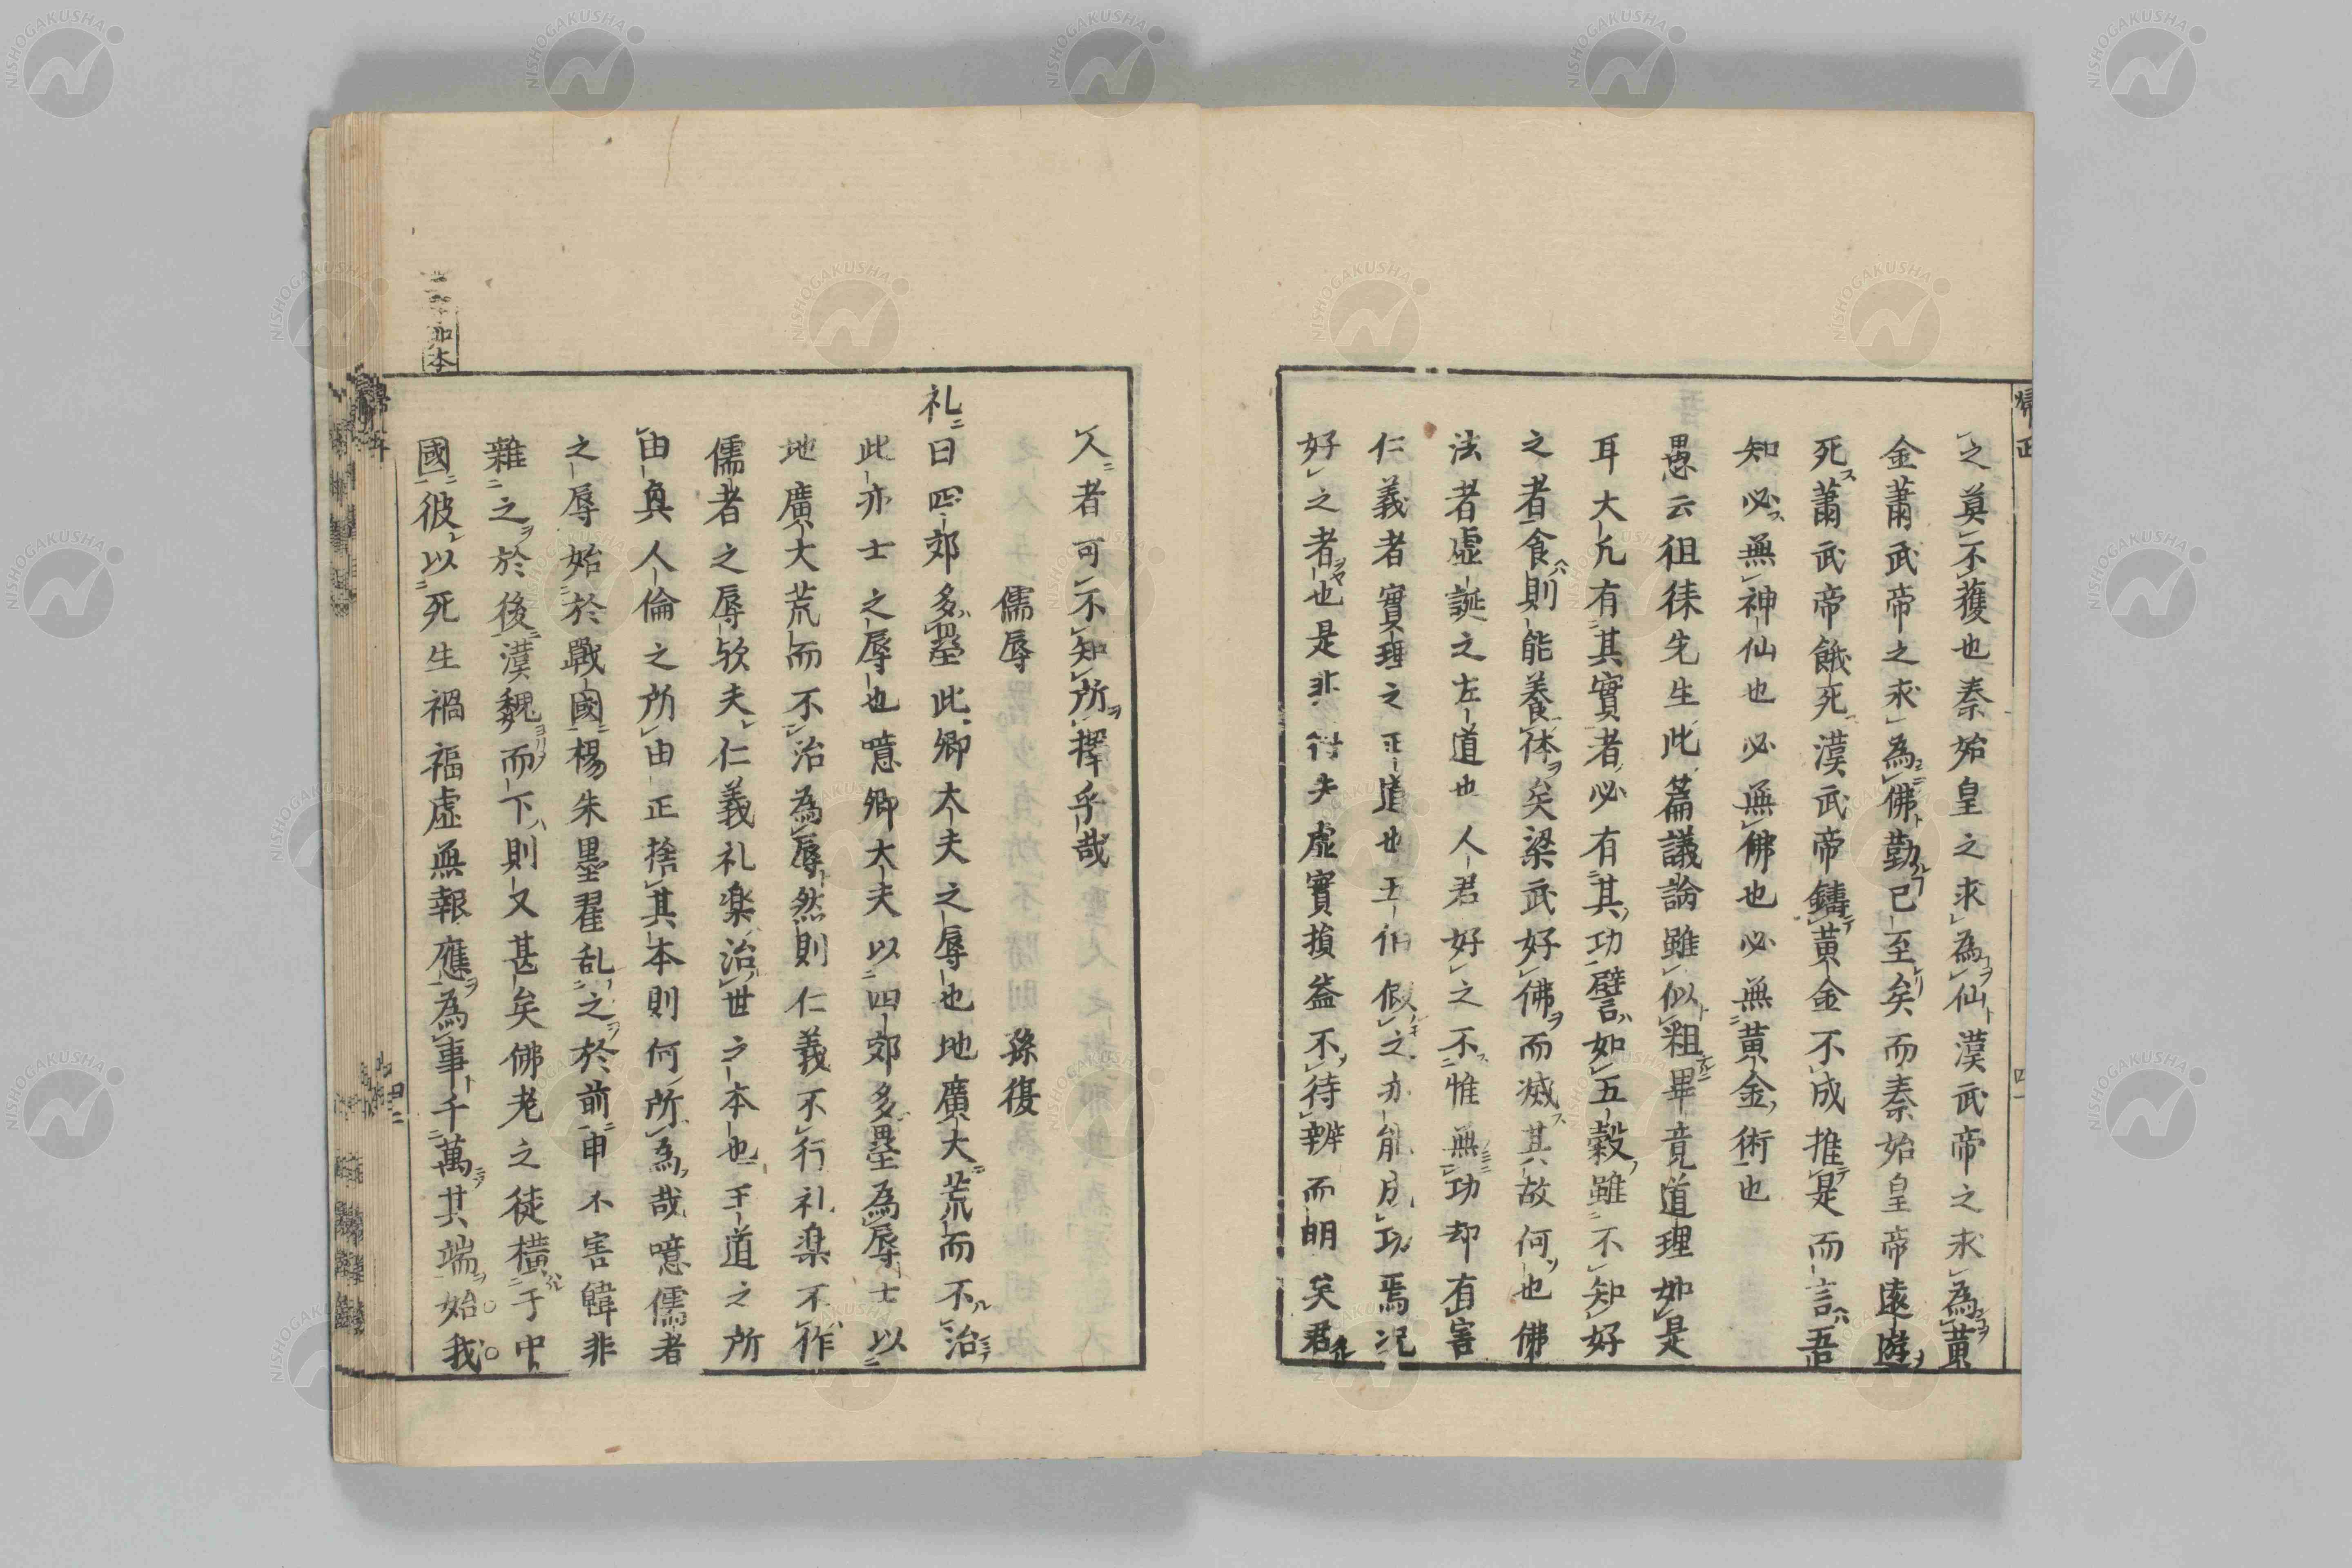 之莫不獲也秦始皇之求為仙漢武帝之求為黄
金蕭武帝之求為佛勤已至矣而秦始皇帝遠遊
死蕭武帝餓死漢武帝鑄黄金不成推是而言吾
知必無神仙也必無佛也必無黄金術也
愚云徂徠先生此篇議論雖似粗畢竟道理如是
耳大凡有其實者必有其功譬如五穀雖不知好
之者食則能養体矣梁武好佛而滅其故何也佛
法者虚誕之左道也人君好之不惟無功却有害
仁義者實理之正道也五伯假之亦能成功焉况
好之者也是非得失虚實損益不待辨而明矣君
人者可不知所擇乎哉
儒辱 孫復
礼曰四郊多壘此卿大夫之辱也地廣大荒而不治
此亦士之辱也噫卿大夫以四郊多壘為辱士以
地廣大荒而不治為辱然則仁義不行礼楽不作
儒者之辱欤夫仁義礼楽治世之本也王道之所
由興人倫之所由正捨其本則何所為哉噫儒者
之辱始於戰國楊朱墨翟乱之於前申不害韓非
雜之於後漢魏而下則又甚矣佛老之徒橫于中
國彼以死生禍福虚無報應為事千萬其端始我
NISHOGAKUSHA